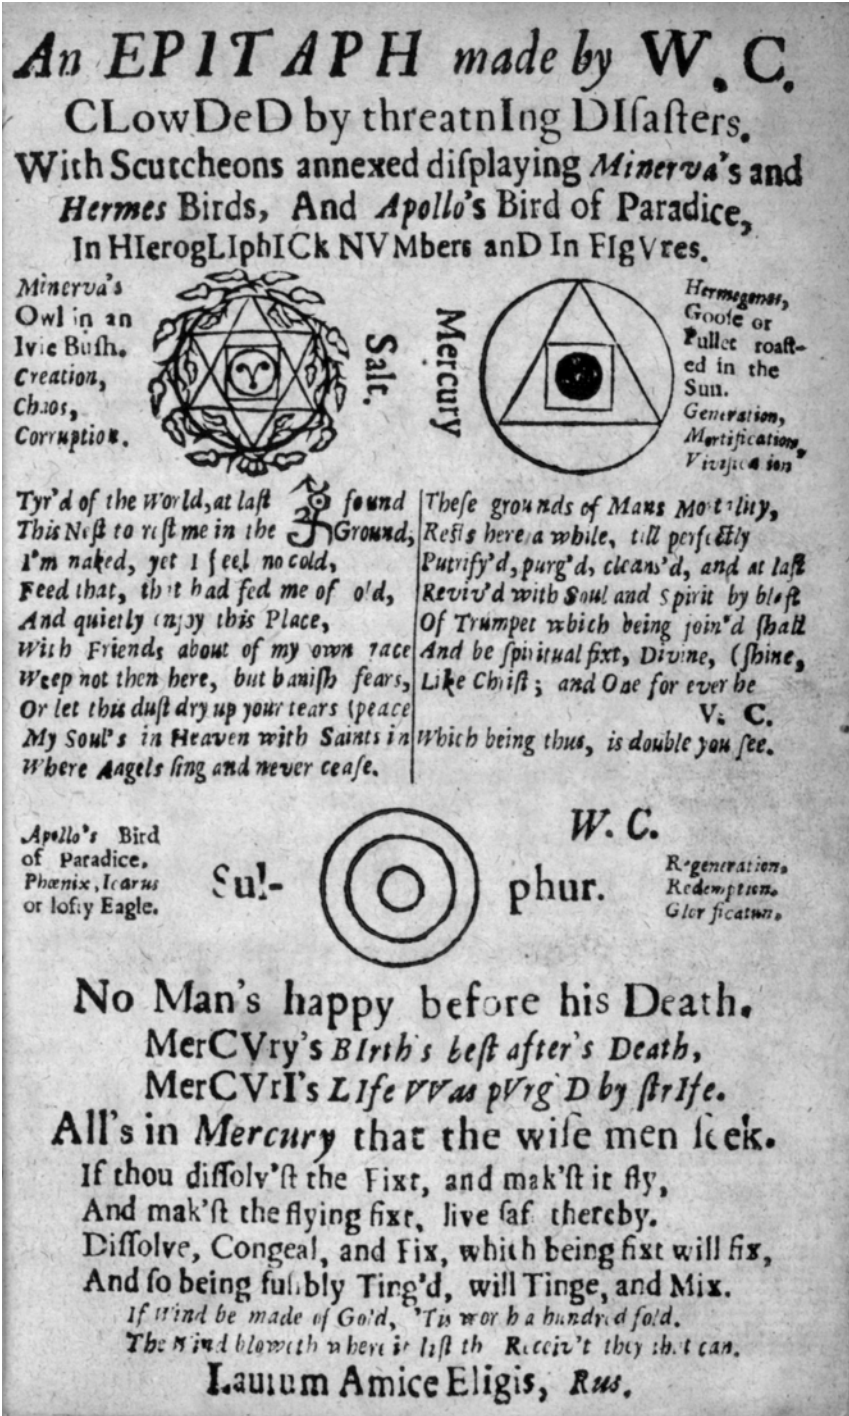 An EPITAPH made by W. C.
CLowDeD by threatnIng DIſaſters.
With Scutcheons annexed diſplaying Minerva's and
Hermes Birds, And Apollo's Bird of Paradice,
In HIerogLIphICk NVMbers anD In FIgVres.
Minerva's
Owl in an
Ivie Buſh.
Creation,
Chaos,
Corruption.
Salt.
Mercury
Hermogenes,
Gooſe or
Pullet roaſt-
ed in the
Sun.
Generation,
Mortification,
Vivification
Tyr'd of the World, at laſt found
This Neſt to reſt me in the Ground;
I'm naked, yet I feel no cold,
Feed that, that had fed me of old,
And quietly injoy this Place,
With Friends about of my own race
Weep not then here, but baniſh fears,
Or let this duſt dry up your tears (peace
My Soul's in Heaven with Saints in
Where Angels ſing and never ceaſe.
Theſe grounds of Mans Mortility,
Reſts here a while, till perfectly
Putrify'd, purg'd, cleans'd, and at laſt
Reviv'd with Soul and Spirit by blaſt
Of Trumpet which being join'd ſhall
And be ſpiritual fixt, Divine, (ſhine,
Like Chriſt; and One for ever be
V. C.
Which being thus, is double you ſee.
W. C.
Apollo's Bird
of Paradice.
Phœnix, Icarus
or lofty Eagle.
Sul-
phur.
Regeneration.
Redemption.
Glorification.
No Man's happy before his Death.
MerCVry's BIrth's beſt after's Death,
MerCVrI's LIfe VVas pVrg'D by ſtrIfe.
All's in Mercury that the wiſe men ſeek.
If thou diſſolv'ſt the Fixt, and mak'ſt it fly,
And mak'ſt the flying fixt, live ſaf thereby.
Diſſolve, Congeal, and Fix, which being fixt will fix,
And ſo being fuſibly Ting'd, will Tinge, and Mix.
If Wind be made of Gold, 'Tis worth a hundred fold.
The Wind bloweth where it liſteth Receiv't they that can.
Lauium Amice Eligis, Rus.